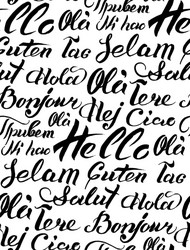 Olá Привет
Ni hao Hello Olá
Selam Tere
Guten Tag
Salut Hola
Bonjour Olá
Hej Ciao
Привет Olá
Ni hao Hello
Selam Guten Tag
Salut Hola
Olá Tere Bonjour
Привет Hej Ciao
Ni hao Hello Olá